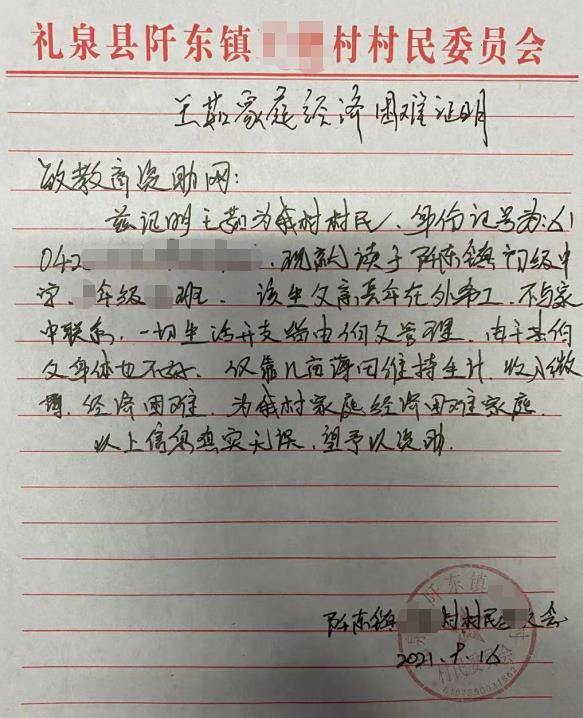 礼泉县阡东镇 村村民委员会
王茹家庭经济困难证明
致教育资助网:
兹证明王茹为我村村民，身份证号为:61
042 ，现就读于阡东镇初级中
学， 年级 班。该生父亲长年在外务工，不与家
中联系，一切生活开支皆由伯父管理，由于其伯
父身体也不好，仅靠几亩薄田维持生计，收入微
薄，经济困难，为我村家庭经济困难家庭
以上信息真实无误，望予以资助.
阡东镇 村村民 会
2021. . 16
阡东镇
村民委员会